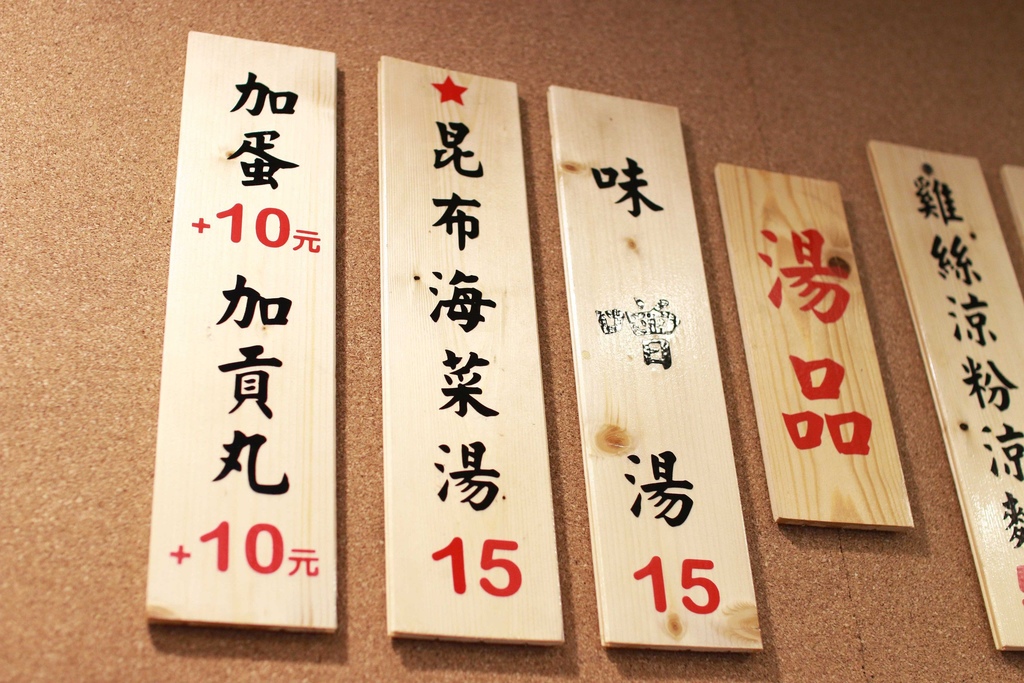 雞絲涼粉涼麵
湯品
味噌湯
15
★昆布海菜湯
15
加蛋
+10元
加貢丸
+10元